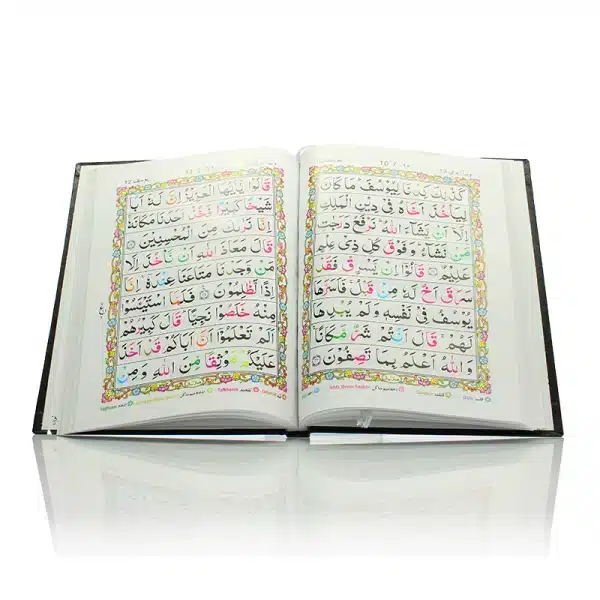 كَذٰلِكَ كِدْنَا لِيُوْسُفَ مَا كَانَ
لِيَاْخُذَ اَخَاهُ فِيْ دِيْنِ الْمَلِكِ
اِلَّاۤ اَنْ يَّشَآءَ اللّٰهُ نَرْفَعُ دَرَجٰتٍ
مَّنْ نَّشَآءُ وَفَوْقَ كُلِّ ذِيْ عِلْمٍ
عَلِيْمٌ قَالُوْۤا اِنْ يَّسْرِقْ فَقَدْ
سَرَقَ اَخٌ لَّهٗ مِنْ قَبْلُ فَاَسَرَّهَا
يُوْسُفُ فِيْ نَفْسِهٖ وَلَمْ يُبْدِهَا
لَهُمْ قَالَ اَنْتُمْ شَرٌّ مَّكَانًا
وَاللّٰهُ اَعْلَمُ بِمَا تَصِفُوْنَ
قَالُوْا يٰۤاَيُّهَا الْعَزِيْزُ اِنَّ لَهٗۤ اَبًا
شَيْخًا كَبِيْرًا فَخُذْ اَحَدَنَا مَكَانَهٗ
اِنَّا نَرٰىكَ مِنَ الْمُحْسِنِيْنَ
قَالَ مَعَاذَ اللّٰهِ اَنْ نَّاْخُذَ اِلَّا
مَنْ وَّجَدْنَا مَتَاعَنَا عِنْدَهٗۤ اِنَّاۤ
اِذًا لَّظٰلِمُوْنَ فَلَمَّا اسْتَيْـَٔسُوْا
مِنْهُ خَلَصُوْا نَجِيًّا قَالَ كَبِيْرُهُمْ
اَلَمْ تَعْلَمُوْۤا اَنَّ اَبَاكُمْ قَدْ اَخَذَ
عَلَيْكُمْ مَّوْثِقًا مِّنَ اللّٰهِ وَمِنْ